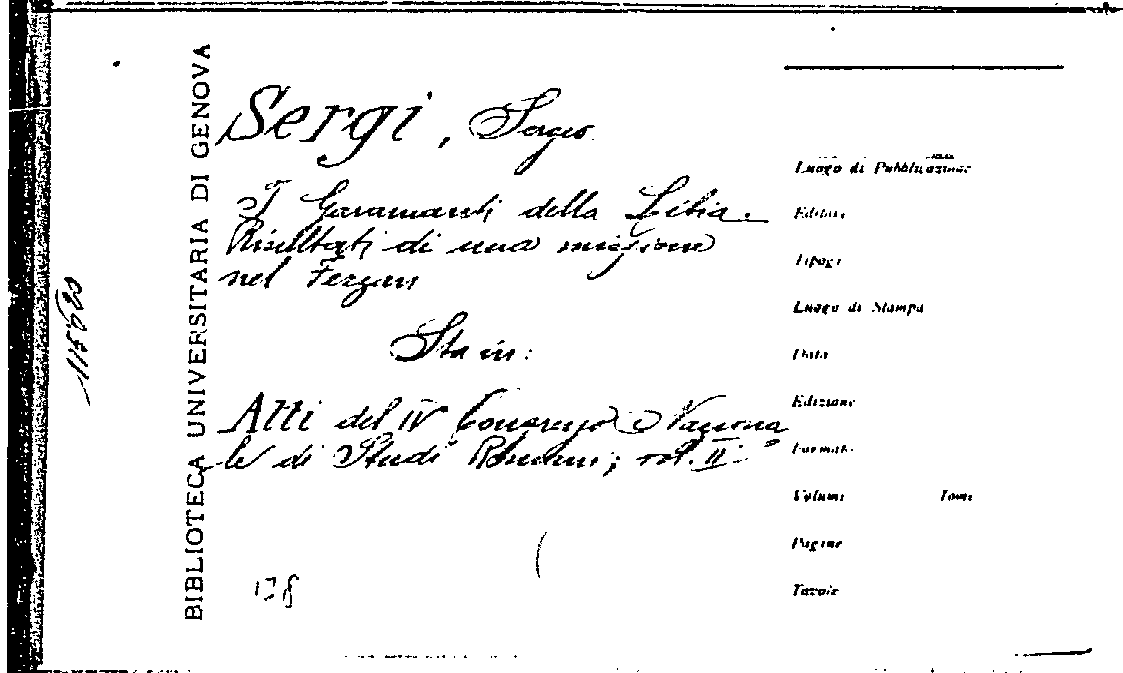 BIBLIOTECA UNIVERSITARIA DI GENOVA
Sergi, Sergio
I Garamanti della Libia.
Risultati di una missione
nel Fezzan
Sta in:
Atti del IV Congresso Naziona
le di Studi Romani; vol. II°
Luogo di Pubblicazione
Editore
Tipogr
Luogo di Stampa
Data
Edizione
Formato
Volumi Tomi
Pagine
Tavole